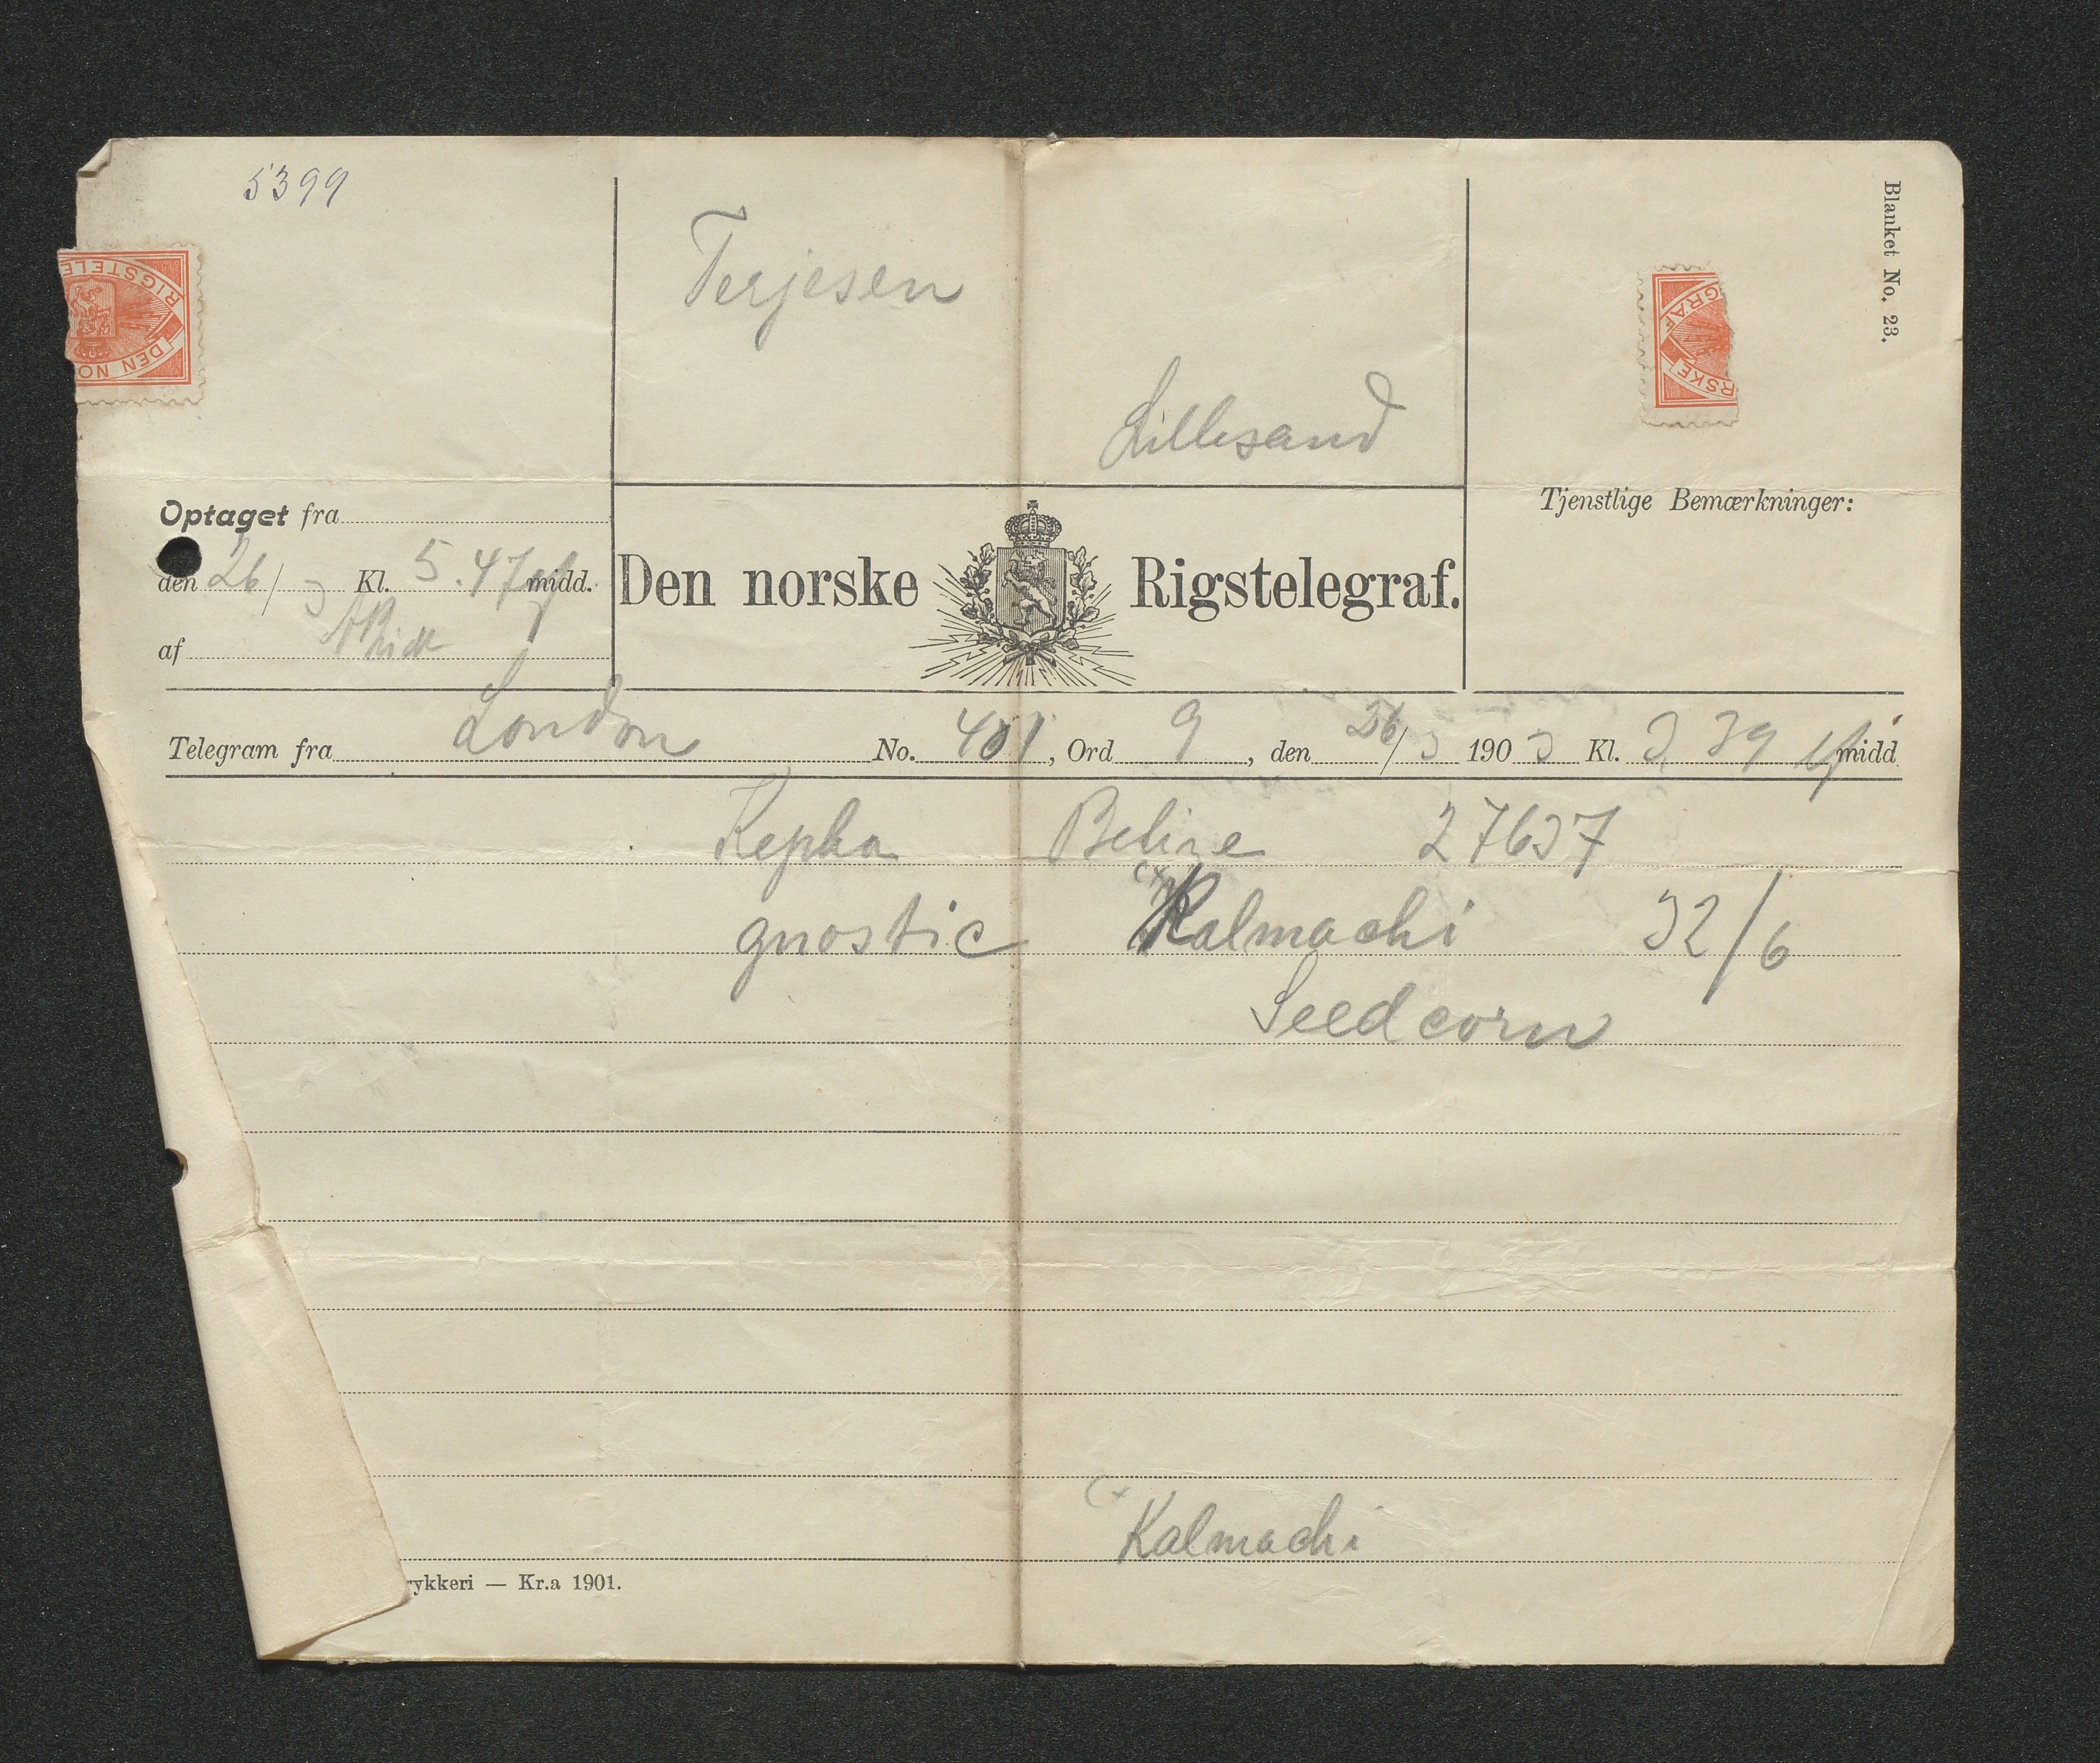 5399
Terjesen
Lillesand
Blanket No. 23.
RIGSTELE
DEN NO
GRAF
RSKE
Optaget fra
den 26/3 Kl. 5.47 ef midd.
af
Den norske Rigstelegraf.
Tjenstlige Bemærkninger:
Telegram fra London No. 401, Ord 9, den 26/3 1903 Kl. 3,39 ef midd
Kepha Belize 27637
gnostic (x Kalmachi 32/6
Seedcorn
(x
Kalmachi
rykkeri — Kr.a 1901.